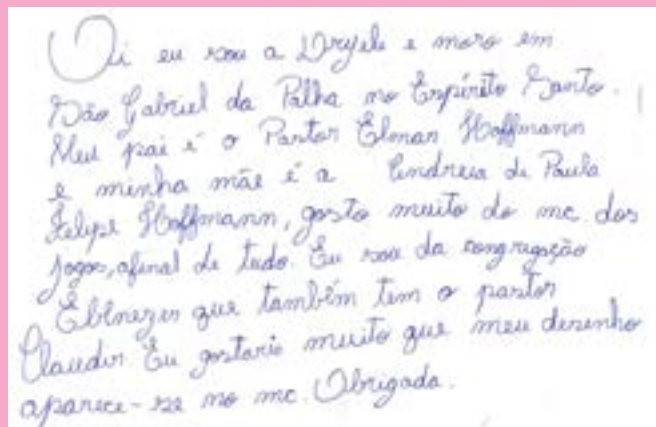 Oi eu sou a Dryele e moro em
São Gabriel da Palha no Espírito Santo.
Meu pai é o Pastor Elmar Hoffmann
e minha mãe é a Andreia de Paula
Felipe Hoffmann, gosto muito do mc dos
jogos, afinal de tudo. Eu sou da congregação
Ebenezer que também tem o pastor
Claudir. Eu gostaria muito que meu desenho
aparece-se no mc. Obrigada.